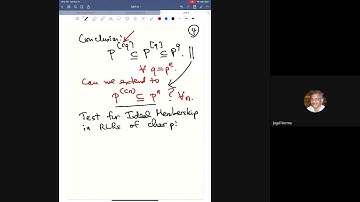 ④
Conclusion:
P^(cq) ⊆ P^[q] ⊆ P^q. ||
∀ q=p^e.
Can we extend to
P^(cn) ⊆ P^n ? ∀n.
Test for Ideal Membership
in RLRs of char p!
Jugal Verma